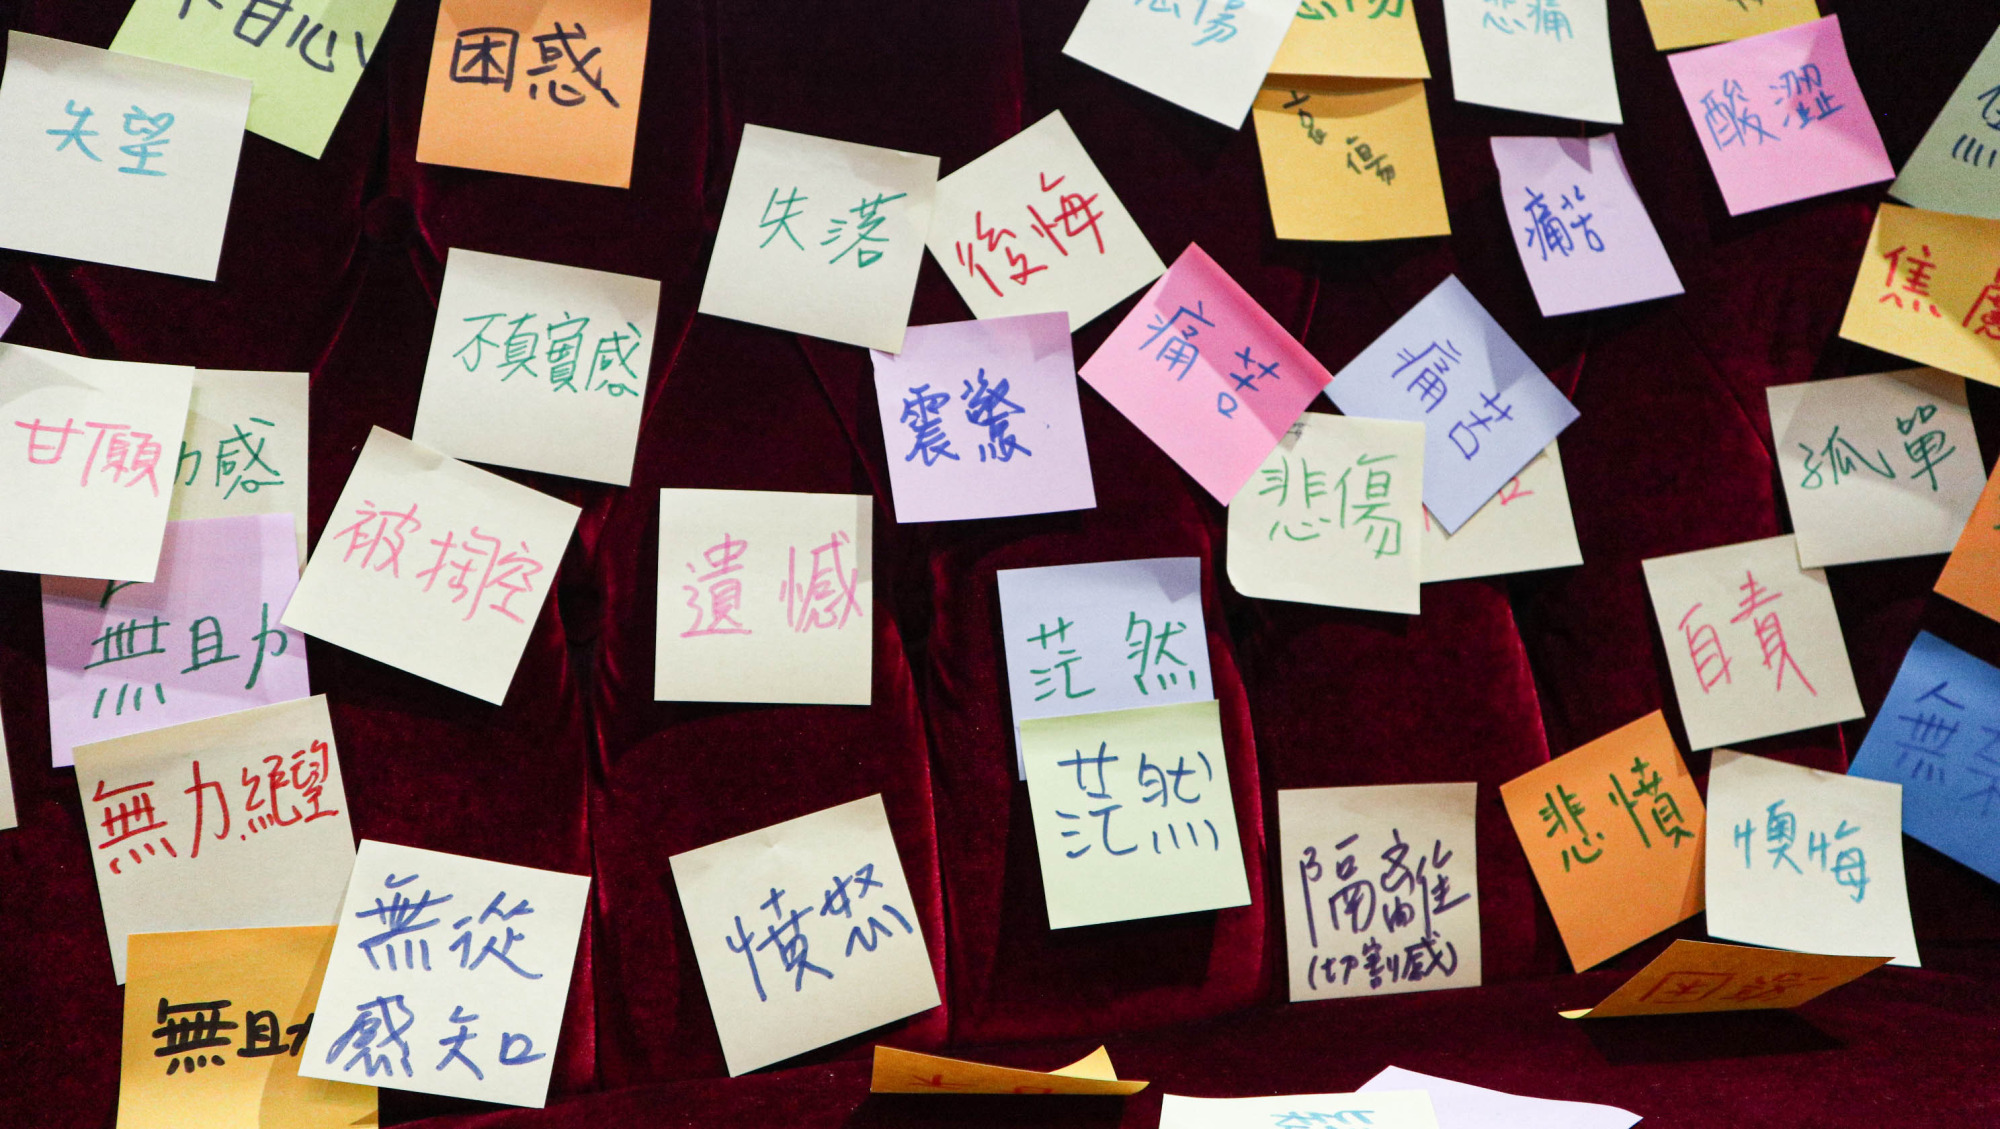 不甘心
困惑
悲傷
悲傷
悲痛
失望
酸澀
傷
痛苦
失落
後悔
焦慮
不真實感
震驚
痛苦
痛苦
甘願
力感
被掏空
遺憾
悲傷
孤單
無助
茫然
自責
無力絕望
茫然
悲憤
懊悔
無從
感知
憤怒
隔離
(切割感)
無助
困惑